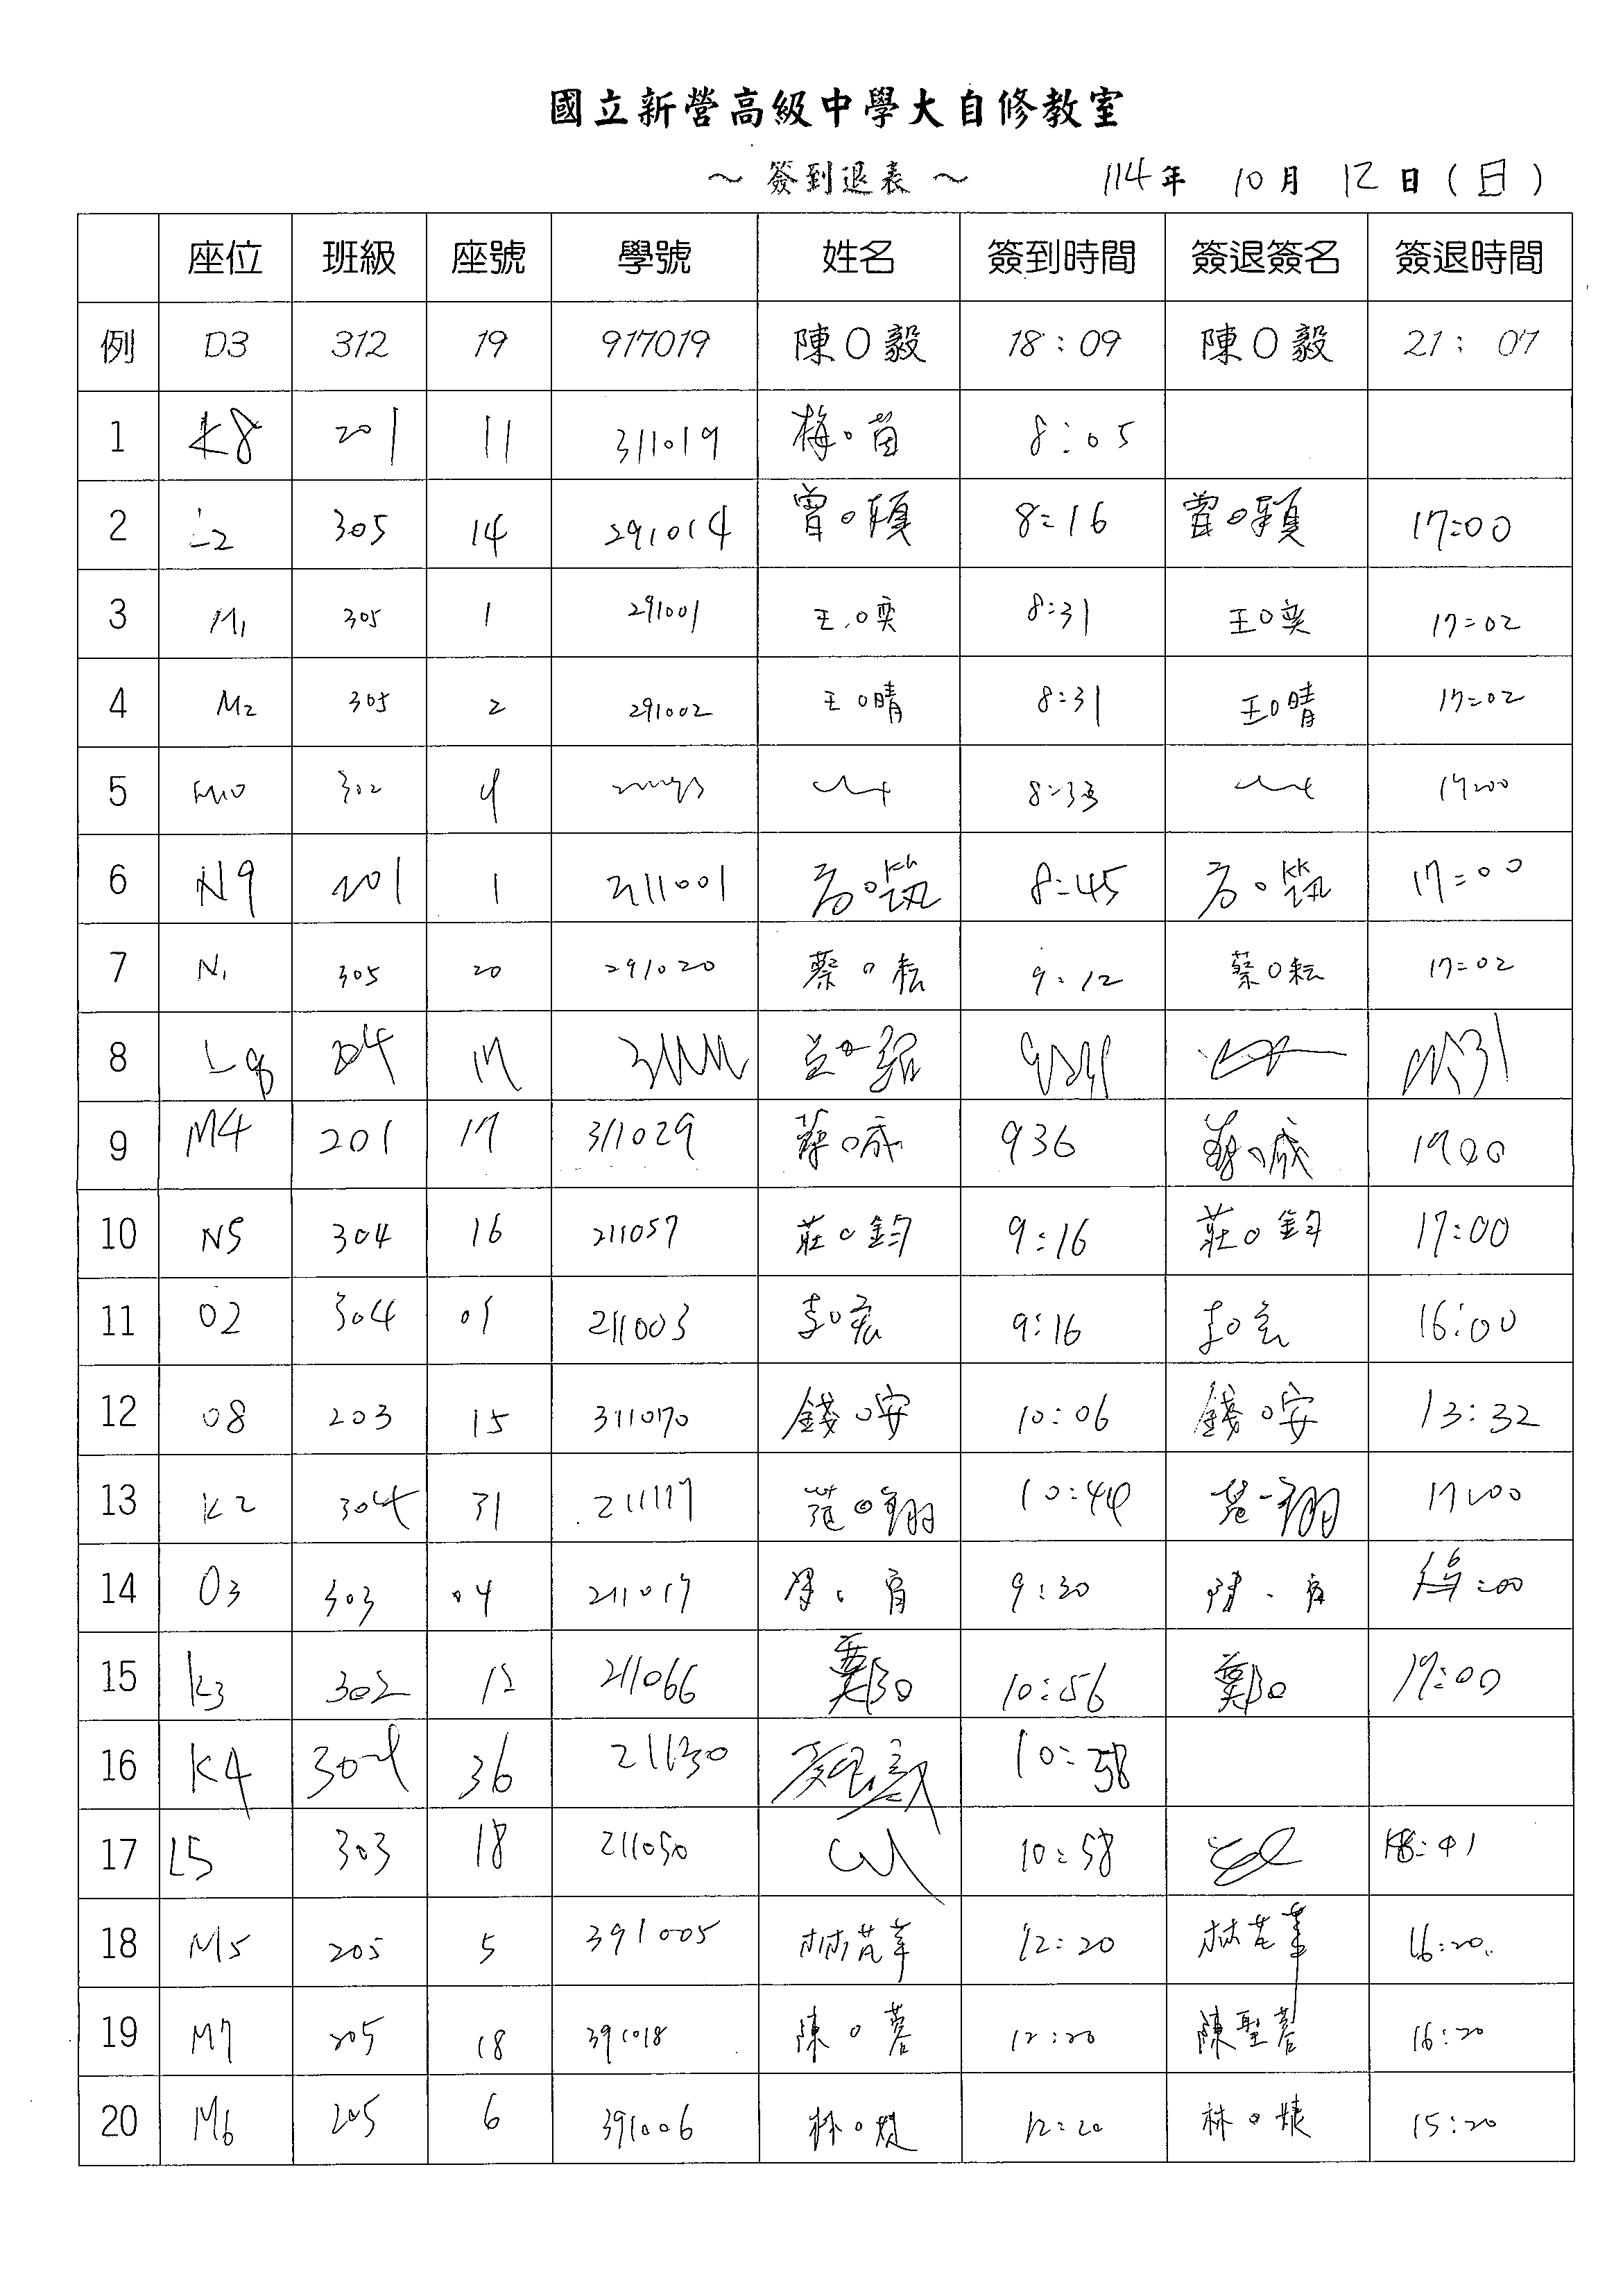 國立新營高級中學大自修教室
～ 簽到退表 ～ 114年 10月 12日(日)
座位 班級 座號 學號 姓名 簽到時間 簽退簽名 簽退時間
例 D3 312 19 917019 陳O毅 18:09 陳O毅 21:07
1 K8 201 11 311019 梅O茵 8:05
2 L2 305 14 291014 曾O穎 8:16 曾O穎 17:00
3 M1 305 1 291001 王O奕 8:31 王O奕 17:02
4 M2 305 2 291002 王O晴 8:31 王O晴 17:02
5 M10 302 8:33 17:00
6 N9 201 1 211001 8:45 17:00
7 N1 305 20 291020 蔡O耘 9:12 蔡O耘 17:02
8 L8 204 17
9 M4 201 17 311029 936 1700
10 N5 304 16 211057 莊O鈞 9:16 莊O鈞 17:00
11 O2 304 01 211003 李O宏 9:16 李O宏 16:00
12 O8 203 15 311070 錢O安 10:06 錢O安 13:32
13 K2 304 31 211117 范O翔 10:44 范O翔 17:00
14 O3 303 04 211017 9:30 :00
15 K3 302 12 211066 鄭O 10:56 鄭O 17:00
16 K4 304 36 211130 10:58
17 L5 303 18 211050 10:58
18 M5 205 5 391005 林芃葦 12:20 林芃葦 16:20
19 M7 205 18 391018 陳O蓉 12:20 陳聖蓉 16:20
20 M6 205 6 391006 林O 12:20 林O 15:20